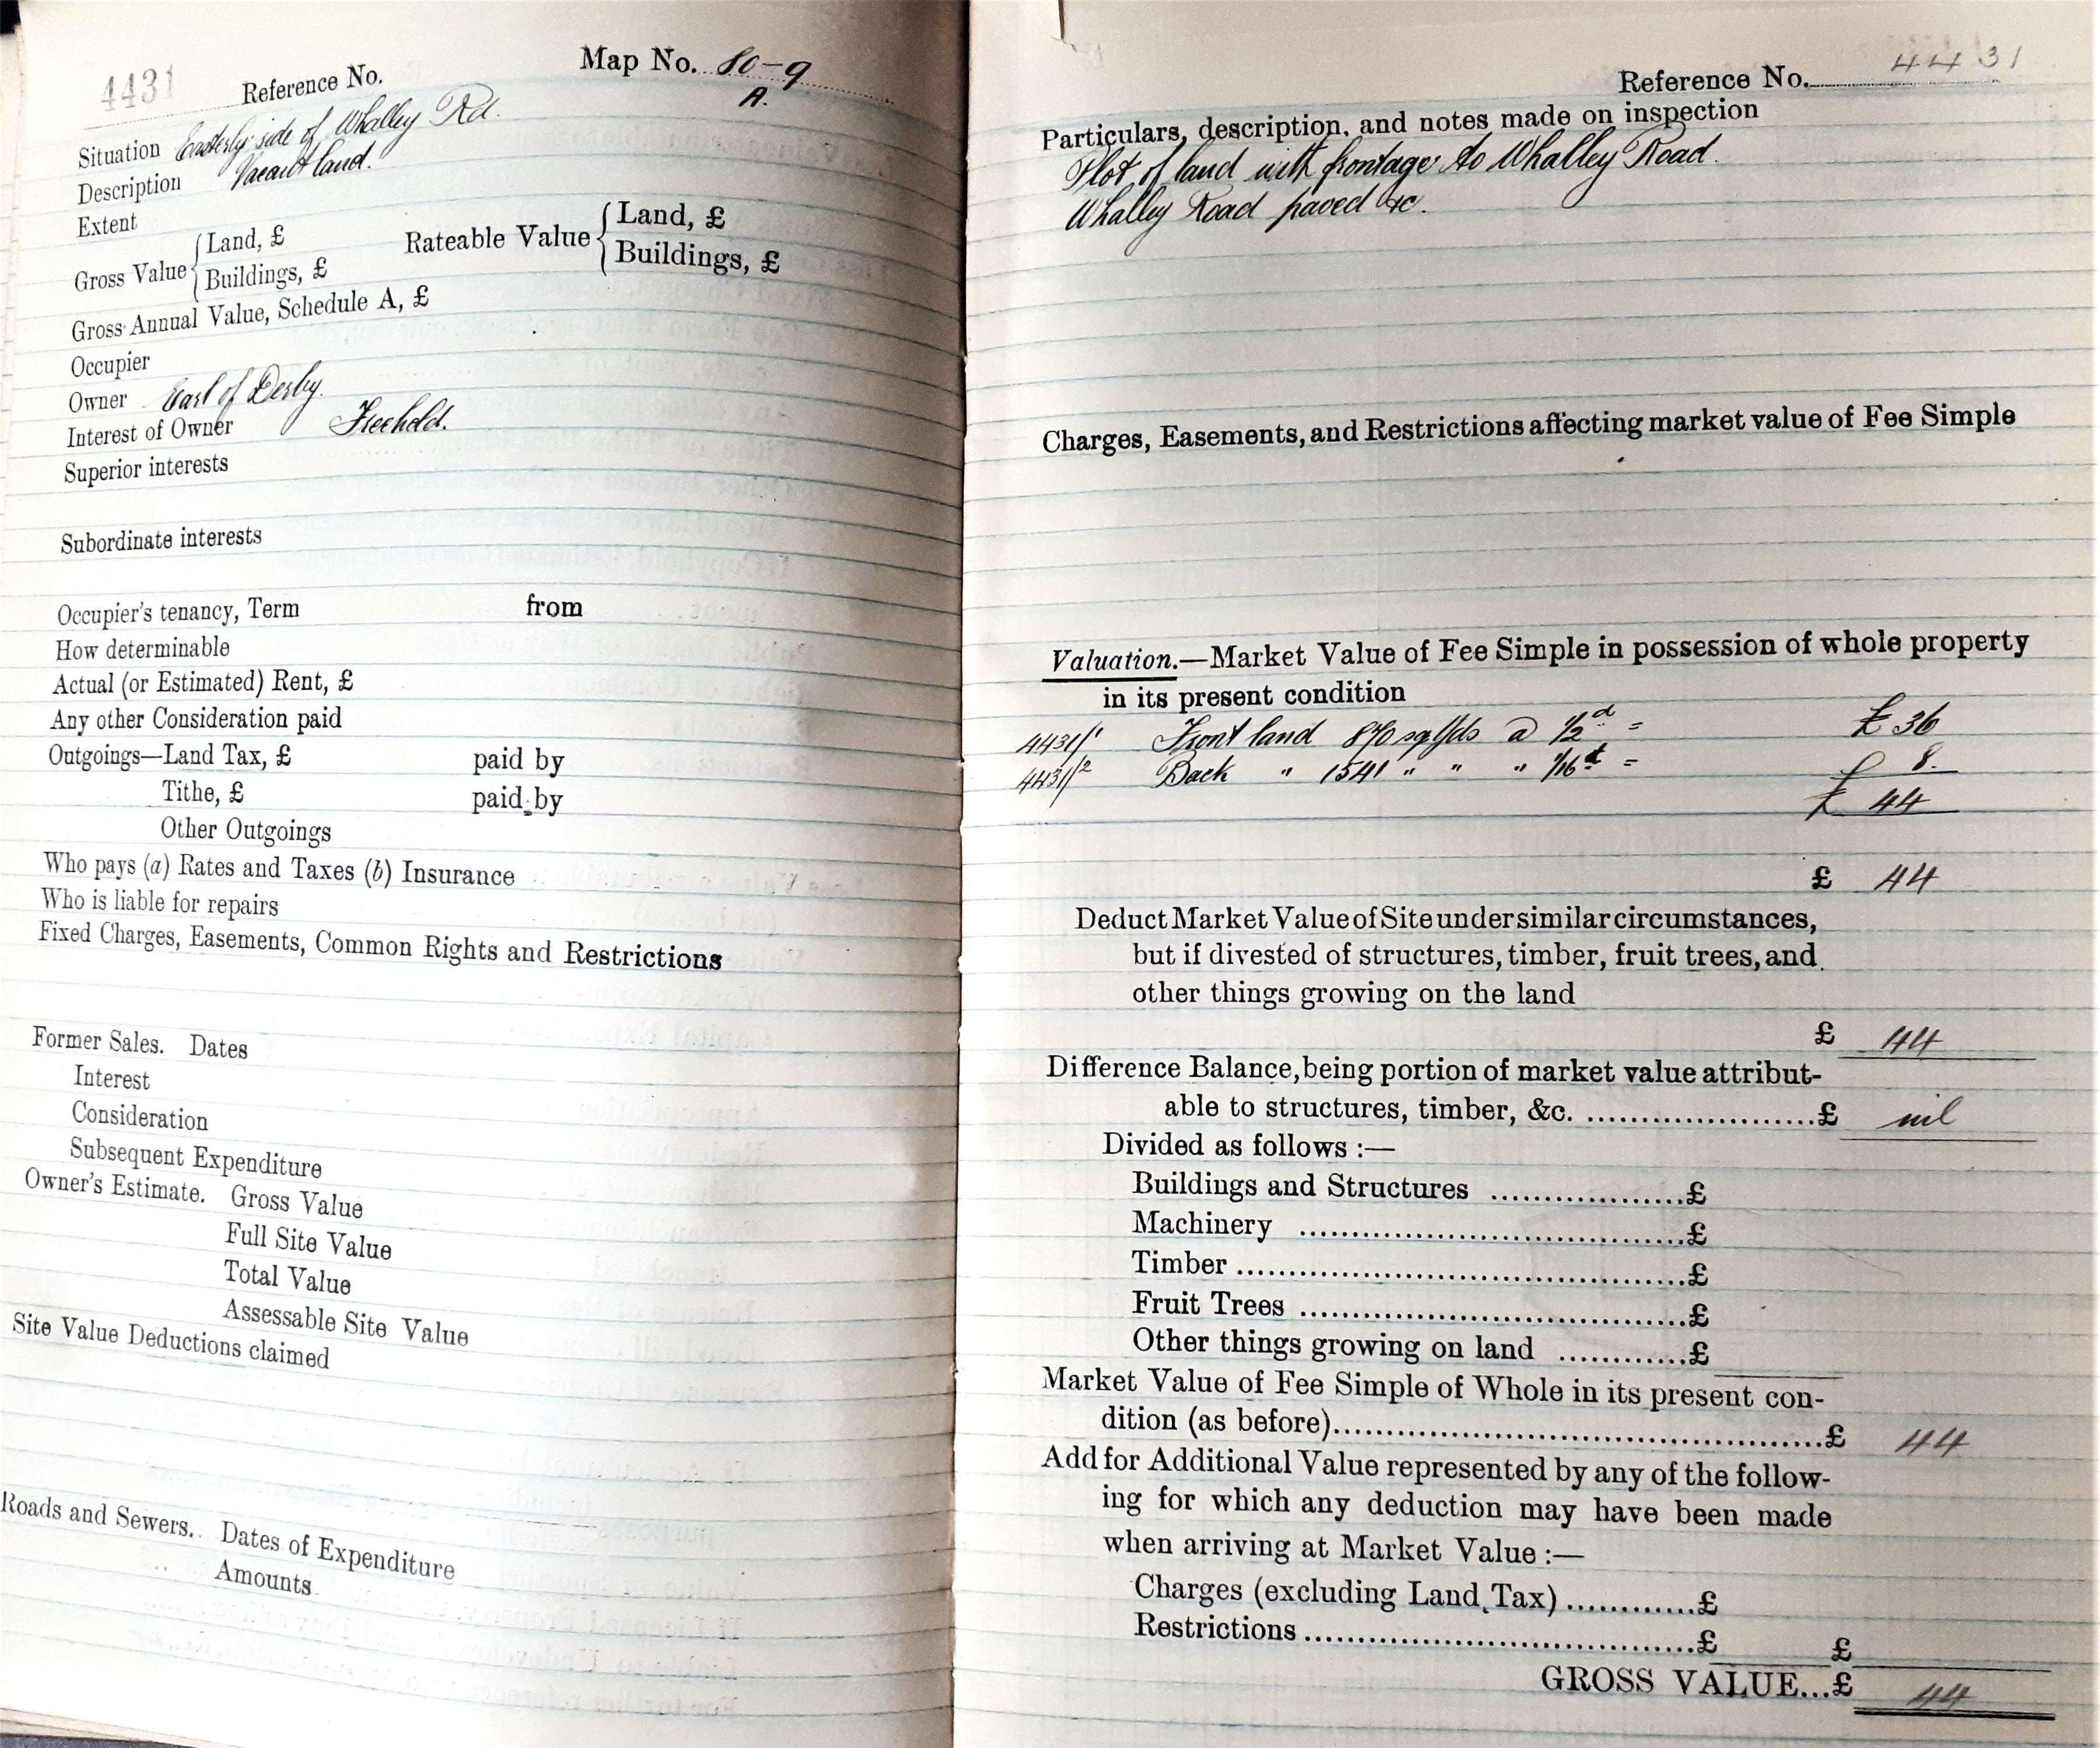 4431 Reference No. Map No. 80-9
A.
Situation Easterly side of Whalley Rd.
Description Vacant land.
Extent
Gross Value { Land, £ Rateable Value { Land, £
Buildings, £ Buildings, £
Gross Annual Value, Schedule A, £
Occupier
Owner Earl of Derby.
Interest of Owner Freehold.
Superior interests
Subordinate interests
Occupier's tenancy, Term from
How determinable
Actual (or Estimated) Rent, £
Any other Consideration paid
Outgoings—Land Tax, £ paid by
Tithe, £ paid by
Other Outgoings
Who pays (a) Rates and Taxes (b) Insurance
Who is liable for repairs
Fixed Charges, Easements, Common Rights and Restrictions
Former Sales. Dates
Interest
Consideration
Subsequent Expenditure
Owner's Estimate. Gross Value
Full Site Value
Total Value
Assessable Site Value
Site Value Deductions claimed
Roads and Sewers. Dates of Expenditure
Amounts
Reference No. 4431
Particulars, description, and notes made on inspection
Plot of land with frontage to Whalley Road.
Whalley Road paved &c.
Charges, Easements, and Restrictions affecting market value of Fee Simple
Valuation.—Market Value of Fee Simple in possession of whole property
in its present condition
4431/1 Front land 870 sq yds @ 1/2d = £ 36
4431/2 Back " 1541 " " " 1/16 = £ 8.
£ 44
£ 44
Deduct Market Value of Site under similar circumstances,
but if divested of structures, timber, fruit trees, and
other things growing on the land
£ 44
Difference Balance, being portion of market value attribut-
able to structures, timber, &c. ......................£ nil
Divided as follows :—
Buildings and Structures ..................£
Machinery ....................................£
Timber ..........................................£
Fruit Trees ....................................£
Other things growing on land ............£
Market Value of Fee Simple of Whole in its present con-
dition (as before)..................................................£ 44
Add for Additional Value represented by any of the follow-
ing for which any deduction may have been made
when arriving at Market Value :—
Charges (excluding Land Tax) ............£
Restrictions ....................................£ £
GROSS VALUE...£ 44